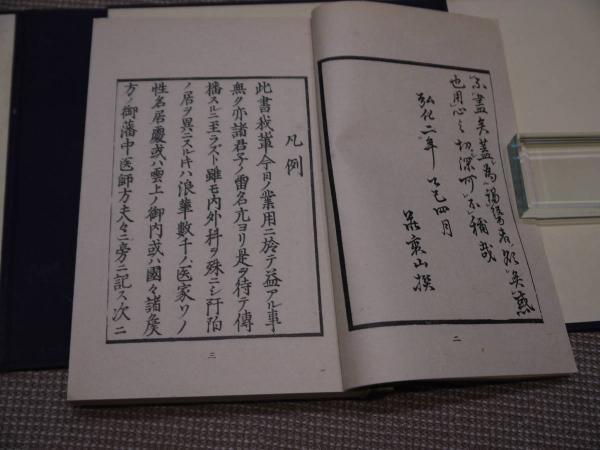 不盡矣蓋為
也用心之切深可不稱哉
弘化二年乙巳四月
山撰
二
凡例
此書我輩今日ノ業用ニ於テ益アル事
無ク亦諸君子ノ雷名亢ヨリ是ヲ待テ傳
播スルニ至ラズト雖モ内外科ヲ殊ニシ阡陌
ノ居ヲ異ニスルキハ浪華數千ノ医家ソノ
性名居處或ハ雲上ノ御内或ハ國々諸矦
方ノ御藩中医師方夫々ニ旁ニ記ス次ニ
三